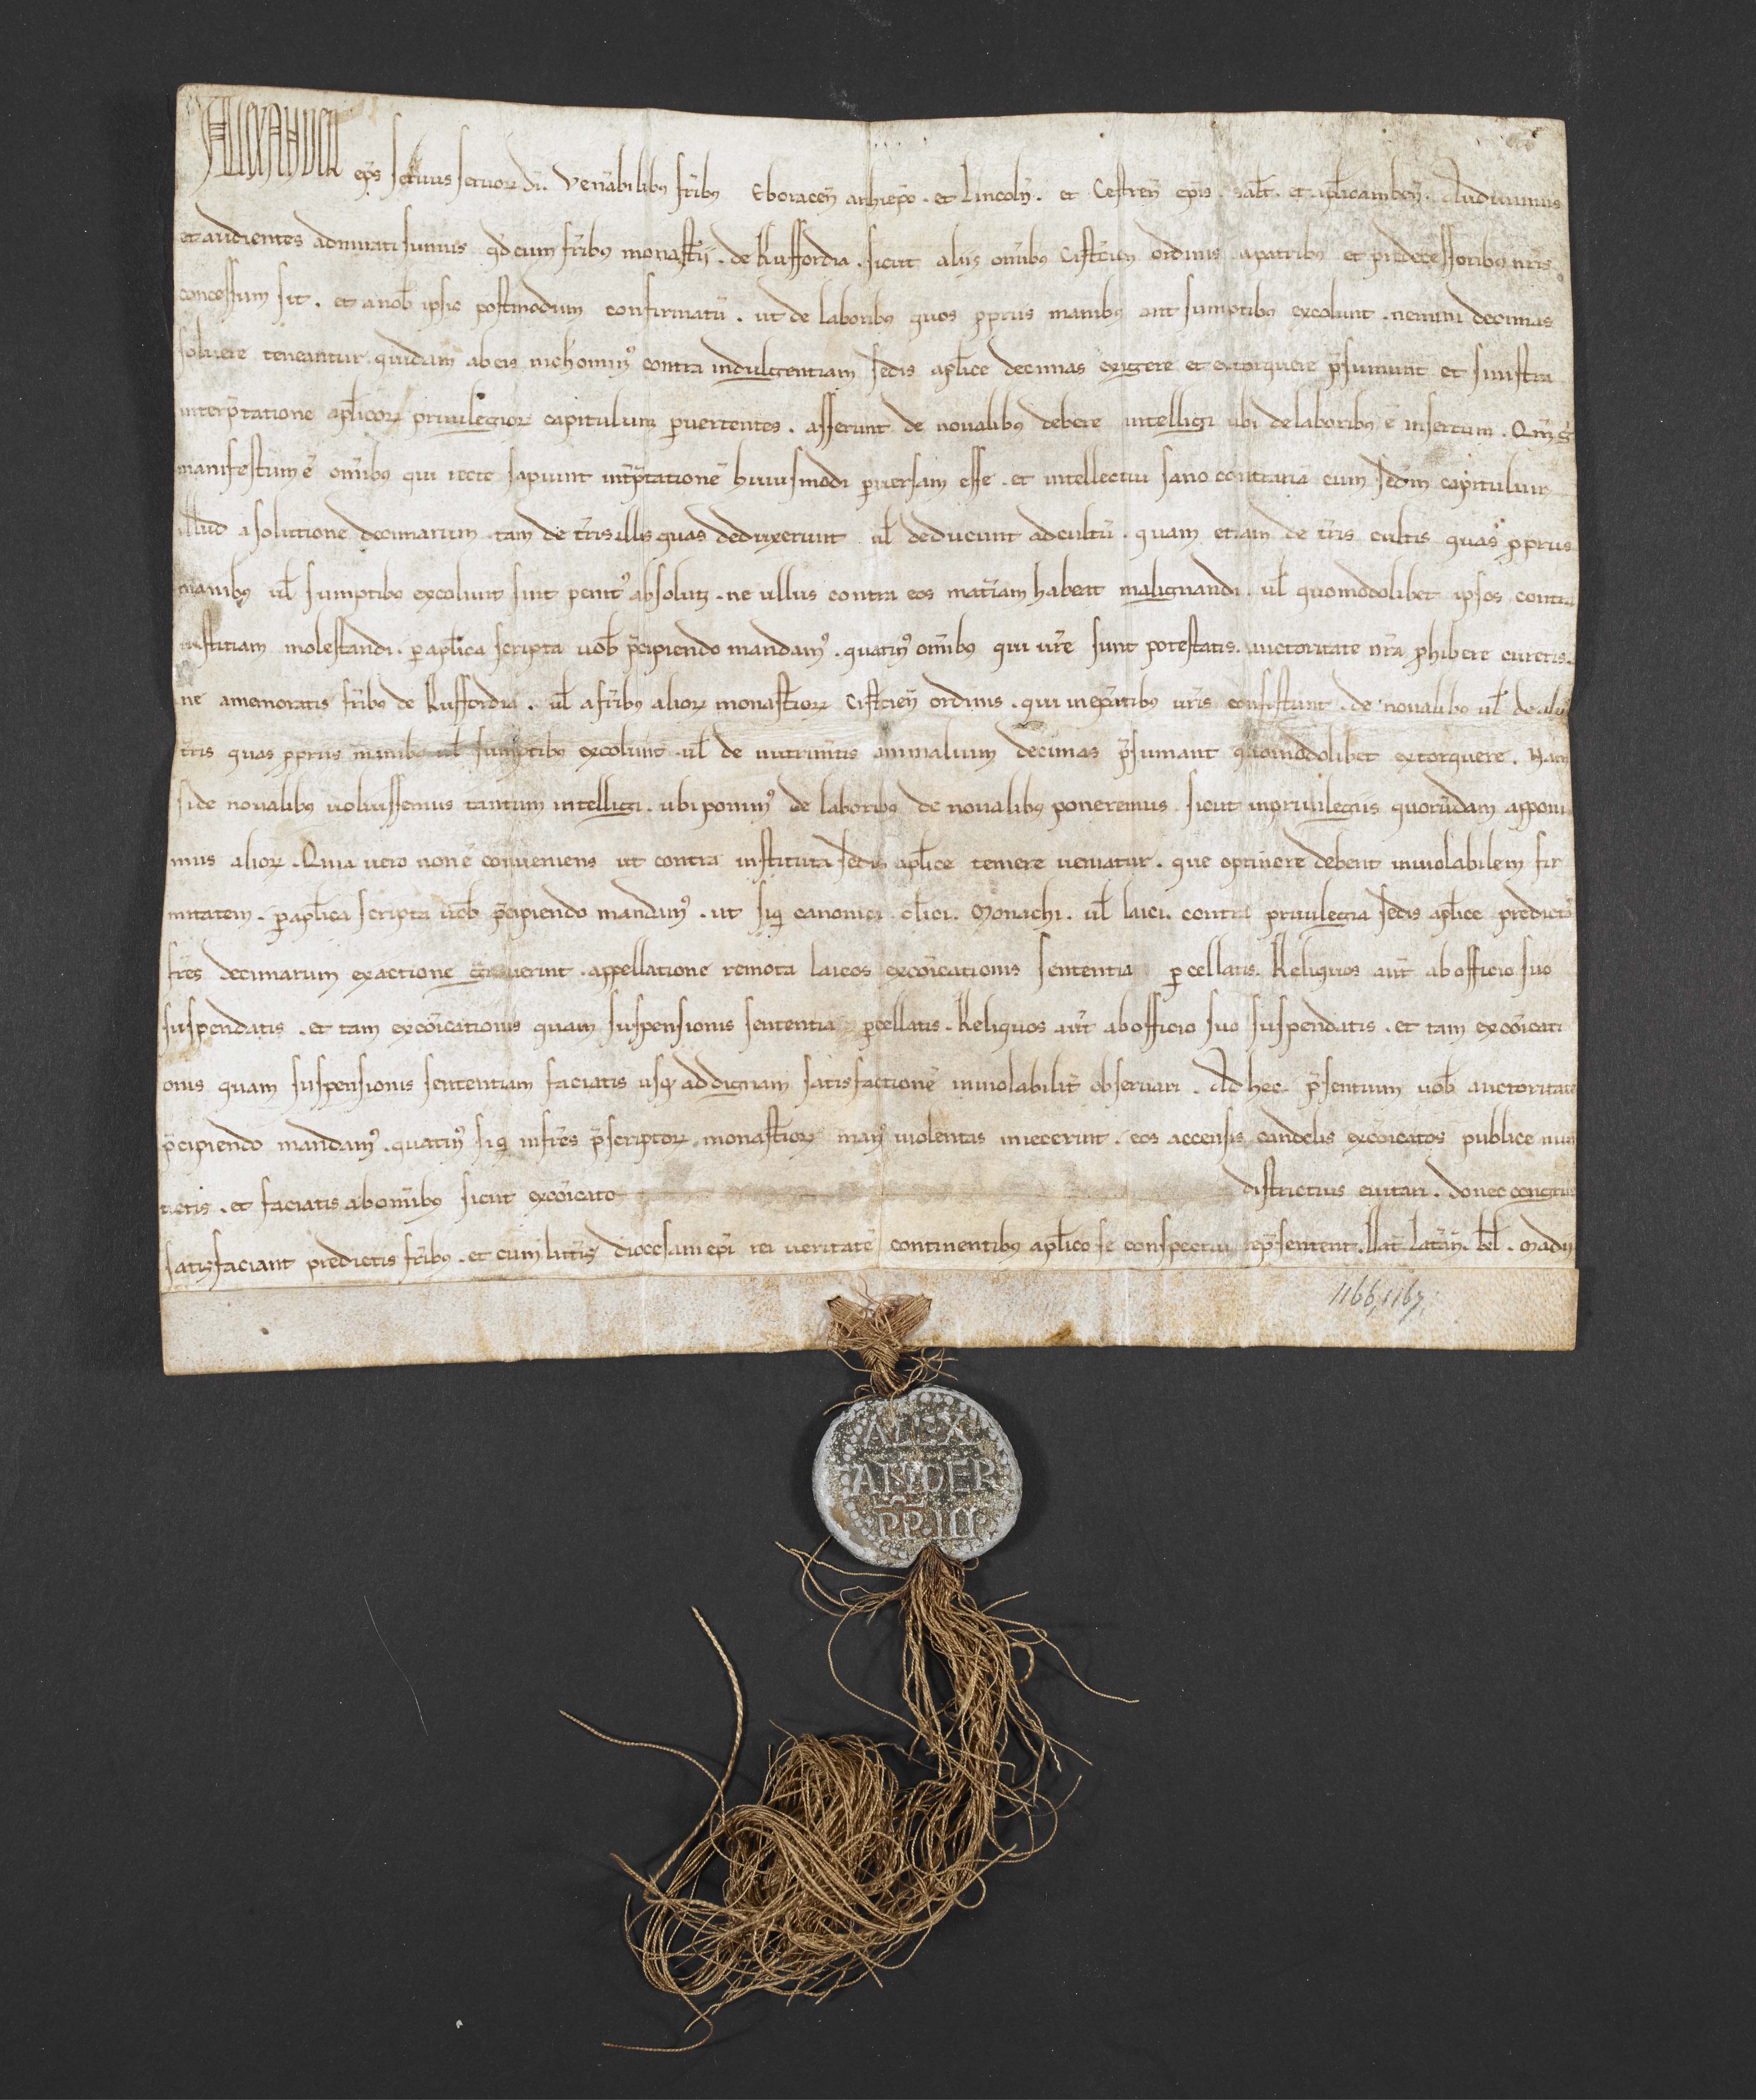 ALEXANDER ep̄s seruus seruoꝝ dī. Venābilibꝰ frībꝰ Eboracen̄ archiep̄o . et Lincoln̄ . et Cestren̄ ep̄is . sal̄t . et ap̄licam ben̄ . Audiuimus
et audientes admirati sumus qd̄ cum fr̄ibꝰ monast̄ij . de Ruffordia . sicut aliis om̄ibꝰ Cist̄cien̄ ordinis apatribꝰ et predecessoribꝰ nr̄is
concessum sit . et a nob̄ ipsis postmodum confirmatū . ut de laboribꝰ quos ꝓpriis manibꝰ aut sumptibꝰ excolunt . nemini decimas
soluere teneantur quidam ab eis nichominꝰ contra indulgentiam sedis ap̄lice decimas exigere et extorquere p̄sumunt et sinistra
interp̄tatione ap̄licoꝝ priuilegioꝝ capitulum ꝑuertentes . asserunt de noualibꝰ debere intelligi ubi de laboribꝰ ē insertum . Qm̄ g̊
manifestum ē om̄ibꝰ qui recte sapiunt int̄p̄tationē huiusmodi ꝑuersam esse . et intellectui sano contrariā cum sedm̄ capitulum
illud a solutione decimarum . tam de tr̄is illis quas deduxerunt ul̄ deducunt ad cultū . quam etiam de tr̄is cultis quas ꝓpriis
manibꝰ ul̄ sumptibꝰ excolunt sint penitꝰ absoluti . ne ullus contra eos mat̄iam habeat malignandi . ul̄ quomodolibet ipsos contra
iustitiam molestandi . ꝑ ap̄lica scripta uob̄ p̄cipiendo mandamꝰ . quatinꝰ om̄ibꝰ qui ur̄e sunt potestatis . auctoritate nr̄a ꝓhibere curetis .
ne amemoratis fr̄ibꝰ de Ruffordia . ul̄ a fr̄ibꝰ alioꝝ monast̄ioꝝ Cist̄cien̄ ordinis . qui in ep̄atibꝰ ur̄is consistunt . de noualibꝰ ul̄ de aliis
tr̄is quas ꝓpriis manibꝰ ul̄ sumptibꝰ excolunt . ul̄ de nutrim̄tis animalium decimas p̄sumant quomodolibet extorquere . Nam
si de noualibꝰ uoluissemus tantum intelligi . ubi ponimꝰ de laboribꝰ de noualibꝰ poneremus sicut in priuilegiis quorūdam apponi
mus alioꝝ . Quia uero non ē conueniens ut contra instituta sedis ap̄lice temere ueniatur . que optinere debent inuiolabilem fir
mitatem . ꝑ ap̄lica scripta uob̄ p̄cipiendo mandamꝰ . ut siq̄ canonici . cl̄ici . Monachi . ul̄ laici . contra priuilegia sedis ap̄lice predictos
fr̄es decimarum exactione grauerint . appellatione remota laicos excōicationis sententia ꝑcellatis . Reliquos aūt ab officio suo
suspendatis . et tam excōicationis quam suspensionis sententia ꝑcellatis . Reliquos aūt ab officio suo suspendatis . et tam excōicati
onis quam suspensionis sententiam faciatis usq̄ ad dignam satisfactionē inuiolabilit̄ obseruari . Ad hec p̄sentium uob̄ auctoritate
p̄cipiendo mandamꝰ . quatinꝰ siq̄ in fr̄es p̄scriptoꝝ monast̄ioꝝ manꝰ uiolentas iniecerint . eos accensis candelis excōicatos publice nun
tietis . et faciatis ab om̄ibꝰ sicut excōicato districtius euitari . donec congrue
satisfaciant predictis fr̄ibꝰ . et cum litt̄is diocesani ep̄i rei ueritatē continentibꝰ ap̄lico se conspectui rep̄sentent . Dat̄ Lat̄an̄ . kl̄ . Madii
1166, 1167.
ALEX
ANDER
PP. III